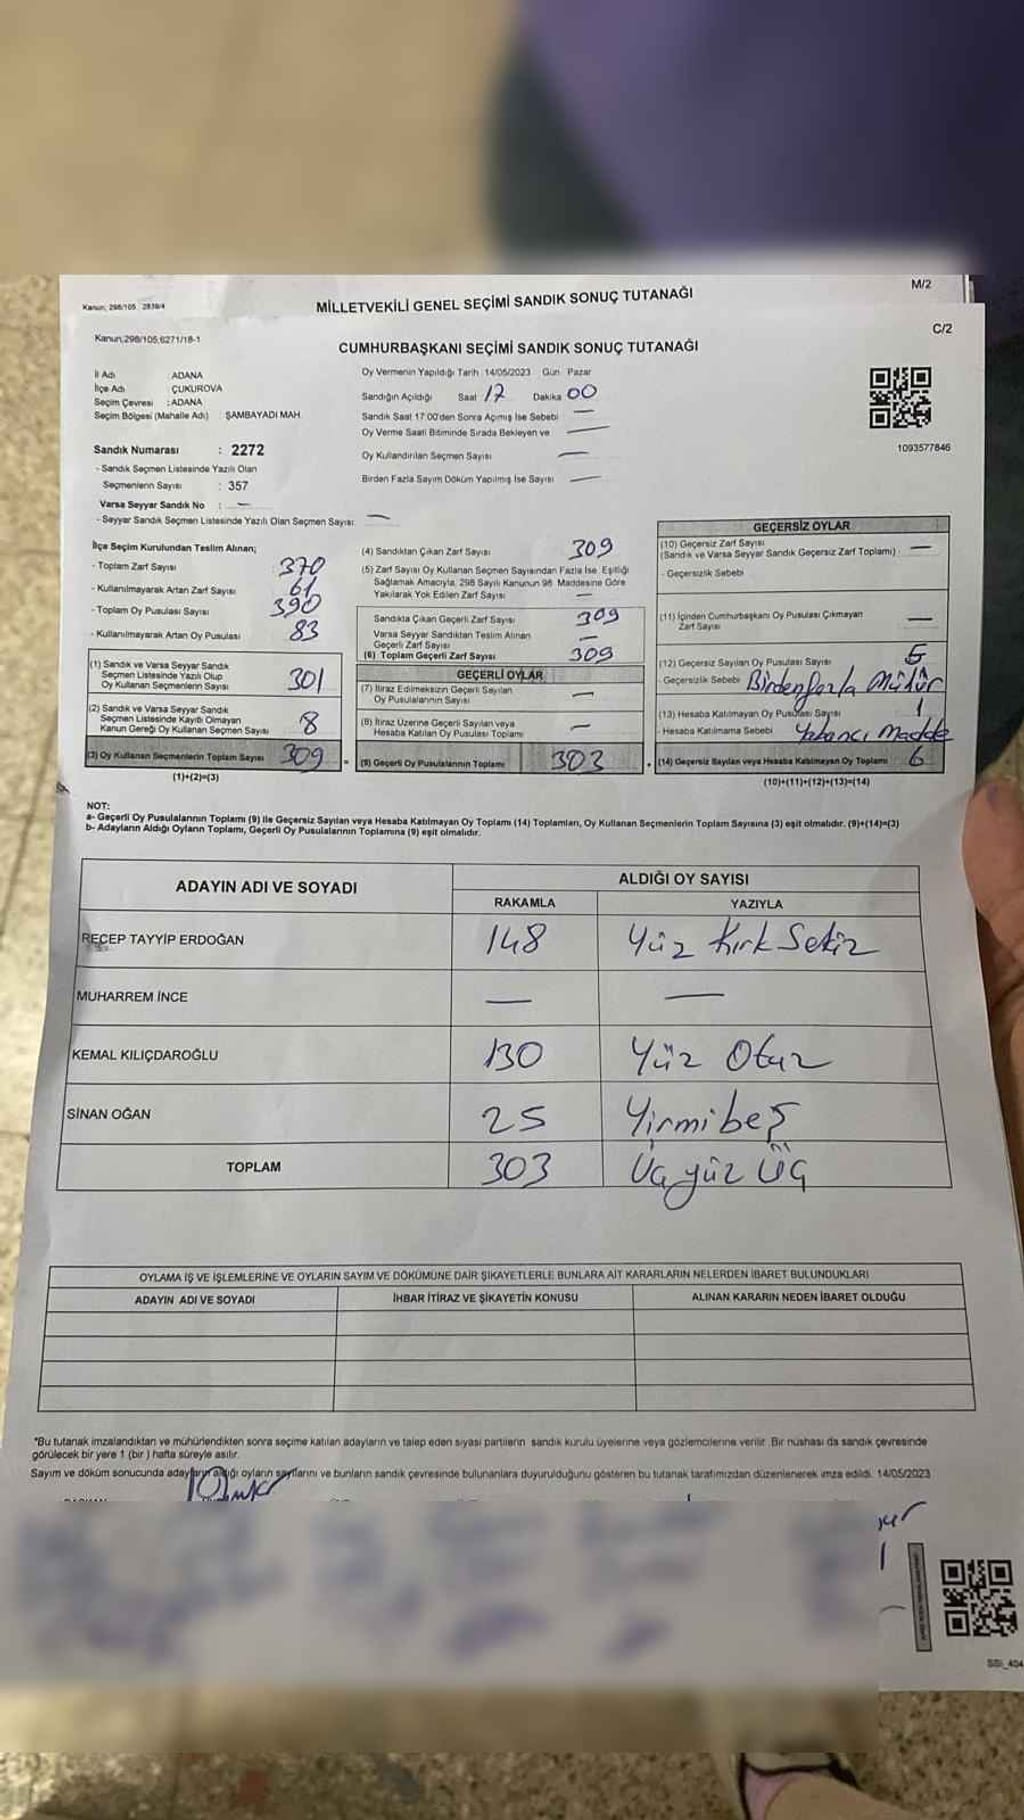 M/2
Kanun; 298/105 2839/4
MİLLETVEKİLİ GENEL SEÇİMİ SANDIK SONUÇ TUTANAĞI
C/2
Kanun;298/105,6271/18-1
CUMHURBAŞKANI SEÇİMİ SANDIK SONUÇ TUTANAĞI
İl Adı : ADANA
İlçe Adı : ÇUKUROVA
Seçim Çevresi : ADANA
Seçim Bölgesi (Mahalle Adı) : ŞAMBAYADI MAH.
Oy Vermenin Yapıldığı Tarih :14/05/2023 Gün: Pazar
Sandığın Açıldığı Saat 17 Dakika 00
Sandık Saat 17:00'den Sonra Açmış İse Sebebi —
Oy Verme Saati Bitiminde Sırada Bekleyen ve —
Oy Kullandırılan Seçmen Sayısı —
Birden Fazla Sayım Döküm Yapılmış İse Sayısı —
1093577846
Sandık Numarası : 2272
- Sandık Seçmen Listesinde Yazılı Olan
Seçmenlerin Sayısı : 357
Varsa Seyyar Sandık No : —
- Seyyar Sandık Seçmen Listesinde Yazılı Olan Seçmen Sayısı: —
İlçe Seçim Kurulundan Teslim Alınan;
- Toplam Zarf Sayısı 370
- Kullanılmayarak Artan Zarf Sayısı 61
- Toplam Oy Pusulası Sayısı 390
- Kullanılmayarak Artan Oy Pusulası 83
(1) Sandık ve Varsa Seyyar Sandık
Seçmen Listesinde Yazılı Olup
Oy Kullanan Seçmenlerin Sayısı 301
(2) Sandık ve Varsa Seyyar Sandık
Seçmen Listesinde Kayıtlı Olmayan
Kanun Gereği Oy Kullanan Seçmen Sayısı 8
(3) Oy Kullanan Seçmenlerin Toplam Sayısı 309
(1)+(2)=(3)
(4) Sandıktan Çıkan Zarf Sayısı 309
(5) Zarf Sayısı Oy Kullanan Seçmen Sayısından Fazla İse, Eşitliği
Sağlamak Amacıyla, 298 Sayılı Kanunun 98. Maddesine Göre
Yakılarak Yok Edilen Zarf Sayısı —
Sandıkta Çıkan Geçerli Zarf Sayısı 309
Varsa Seyyar Sandıktan Teslim Alınan
Geçerli Zarf Sayısı —
(6) Toplam Geçerli Zarf Sayısı 309
GEÇERLİ OYLAR
(7) İtiraz Edilmeksizin Geçerli Sayılan
Oy Pusulalarının Sayısı —
(8) İtiraz Üzerine Geçerli Sayılan veya
Hesaba Katılan Oy Pusulası Toplamı —
(9) Geçerli Oy Pusulalarının Toplamı 303
GEÇERSİZ OYLAR
(10) Geçersiz Zarf Sayısı
(Sandık ve Varsa Seyyar Sandık Geçersiz Zarf Toplamı) —
- Geçersizlik Sebebi
(11) İçinden Cumhurbaşkanı Oy Pusulası Çıkmayan
Zarf Sayısı —
(12) Geçersiz Sayılan Oy Pusulası Sayısı 5
- Geçersizlik Sebebi Birden fazla Mühür
(13) Hesaba Katılmayan Oy Pusulası Sayısı 1
- Hesaba Katılmama Sebebi Yabancı Madde
(14) Geçersiz Sayılan veya Hesaba Katılmayan Oy Toplamı 6
(10)+(11)+(12)+(13)=(14)
NOT:
a- Geçerli Oy Pusulalarının Toplamı (9) ile Geçersiz Sayılan veya Hesaba Katılmayan Oy Toplamı (14) Toplamları, Oy Kullanan Seçmenlerin Toplam Sayısına (3) eşit olmalıdır. (9)+(14)=(3)
b- Adayların Aldığı Oyların Toplamı, Geçerli Oy Pusulalarının Toplamına (9) eşit olmalıdır.
ADAYIN ADI VE SOYADI ALDIĞI OY SAYISI
RAKAMLA YAZIYLA
RECEP TAYYİP ERDOĞAN 148 Yüz Kırk Sekiz
MUHARREM İNCE — —
KEMAL KILIÇDAROĞLU 130 Yüz Otuz
SİNAN OĞAN 25 Yirmi beş
TOPLAM 303 Üçyüz Üç
OYLAMA İŞ VE İŞLEMLERİNE VE OYLARIN SAYIM VE DÖKÜMÜNE DAİR ŞİKAYETLERLE BUNLARA AİT KARARLARIN NELERDEN İBARET BULUNDUKLARI
ADAYIN ADI VE SOYADI İHBAR İTİRAZ VE ŞİKAYETİN KONUSU ALINAN KARARIN NEDEN İBARET OLDUĞU
*Bu tutanak imzalandıktan ve mühürlendikten sonra seçime katılan adayların ve talep eden siyasi partilerin sandık kurulu üyelerine veya gözlemcilerine verilir. Bir nüshası da sandık çevresinde
görülecek bir yere 1 (bir ) hafta süreyle asılır.
Sayım ve döküm sonucunda adayların aldığı oyların sayılarını ve bunların sandık çevresinde bulunanlara duyurulduğunu gösteren bu tutanak tarafımızdan düzenlenerek imza edildi. 14/05/2023